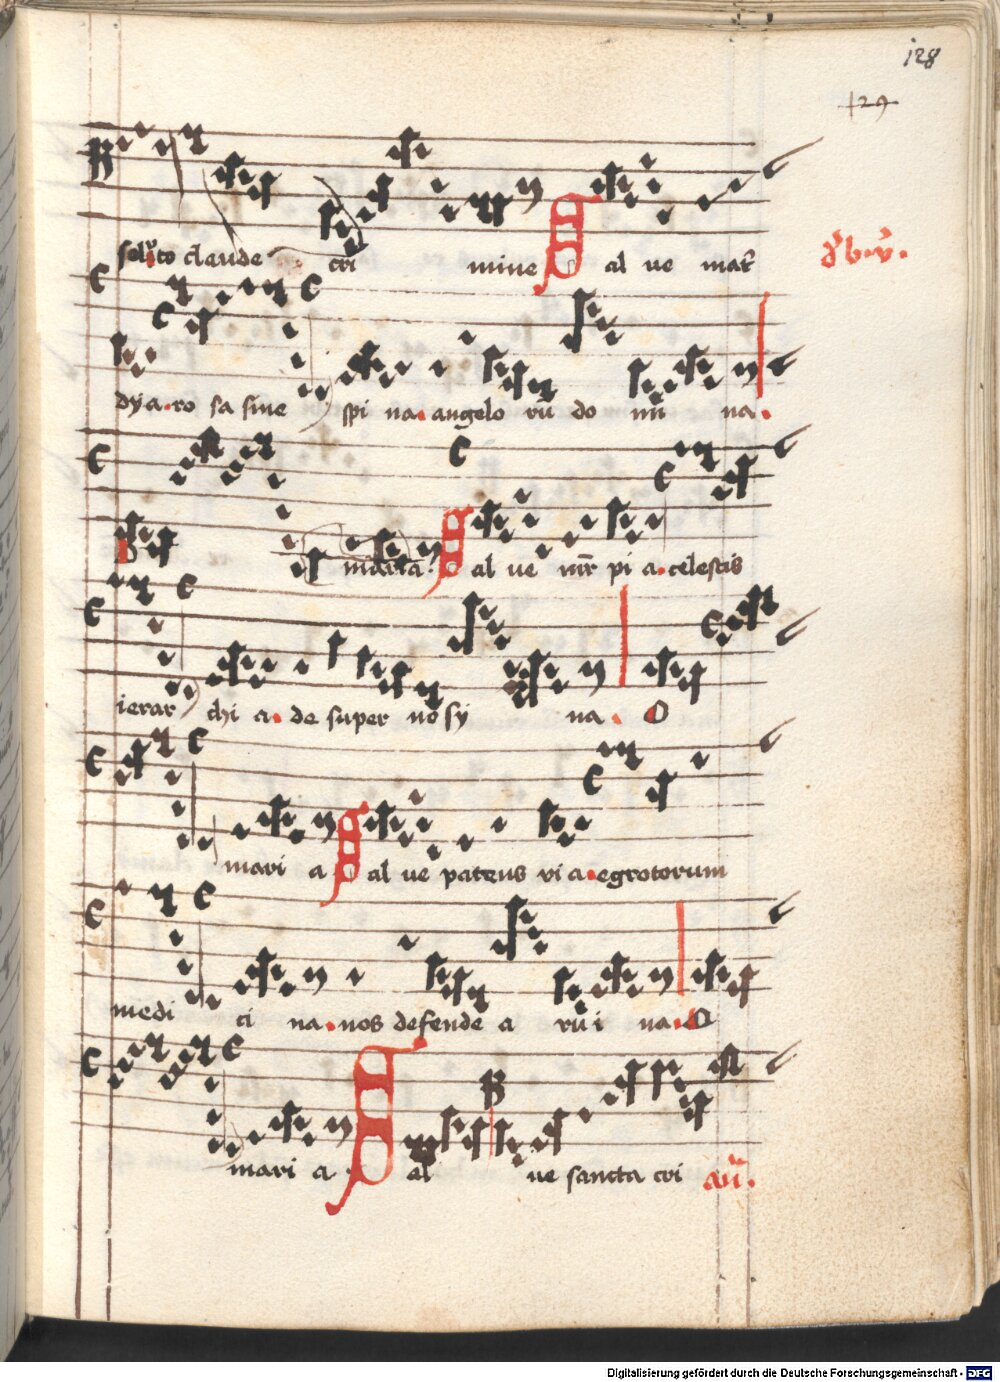 128
129
to claude cri mine Sal ve mat
dya. ro sa sine spi na. angelo rū do mi na.
maria. Sal ve mr pi a. celestis
ierar chi a. de super no sy na. O
mari a Sal ve patens vi a. egrotorum
medi ci na. nos defende a rui na. O
mari a Sal ve sancta cri
Digitalisierung gefördert durch die Deutsche Forschungsgemeinschaft - DFG